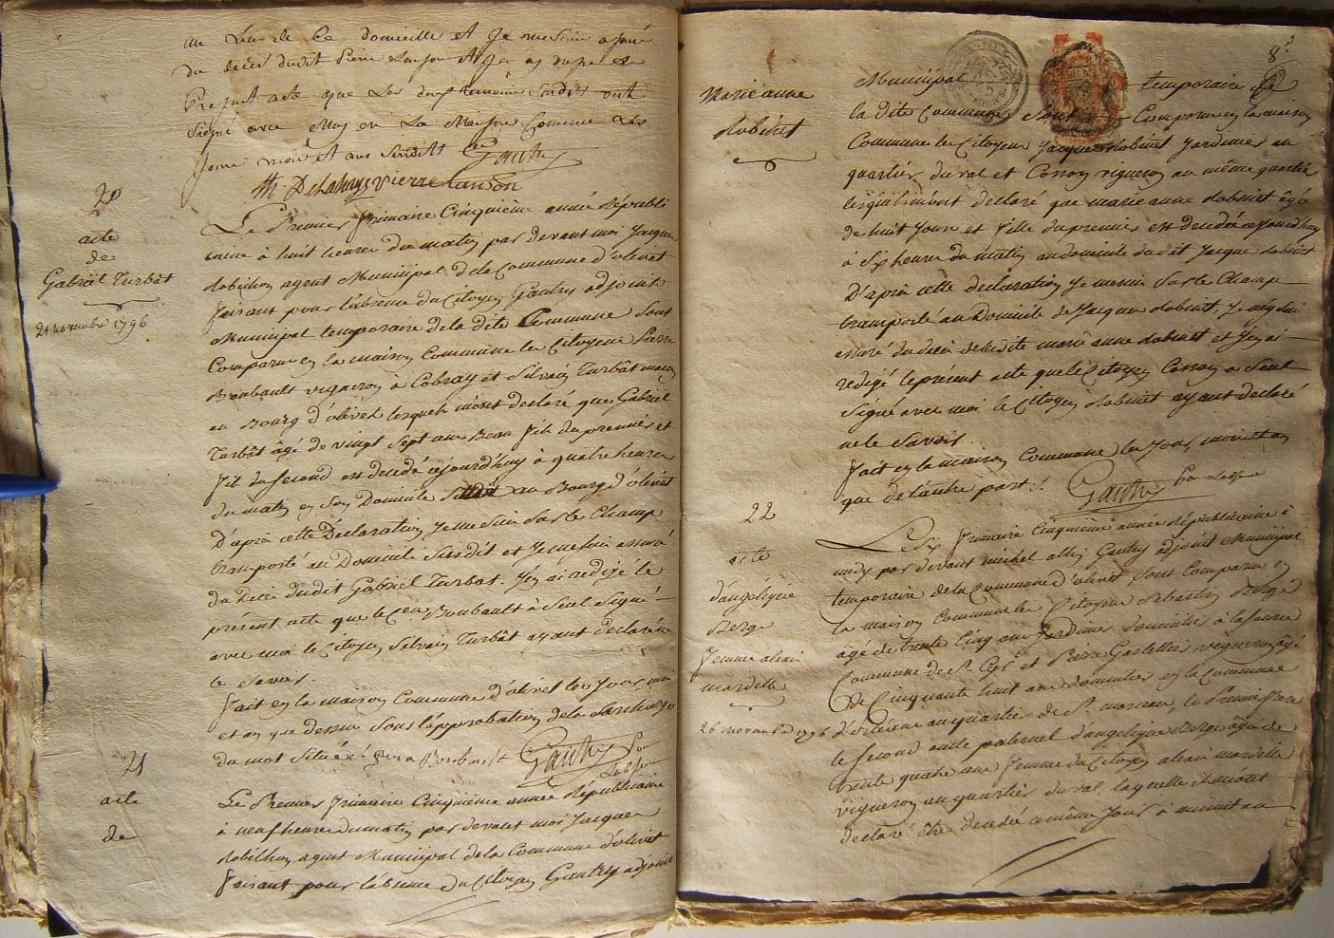 au de ce domicille et je me suis assuré
du décès dudit Pierre et j'en ay dressé le
Présent acte que les deux témoins susdits ont
signé avec moy en la Maison Commune les
jour mois et ans susdits
Gautry
Th Delahaye Pierre Lanson
20
acte
de
Gabriël Turbât
21 novembre 1796
Le Premier frimaire Cinquième année Républi
caine à huit heures du matin par devant moi Jacques
Robillion agent Municipal de la Commune d'olivet
faisant pour l'absence du Citoyen Gautry adjoint
Municipal temporaire de la dite Commune sont
Comparus en la maison Commune le Citoyen Pierre
Boubault vigneron à Cobray et Silvain Turbât maçon
au Bourg d'olivet lesquels m'ont déclaré que Gabriël
Turbât âgé de vingt sept ans Beau fils du premier et
fils du second est decedé ajourd'huy à quatre heures
du matin en son Domicile Sittué au Bourg d'olivet
D'après cette Déclaration Je me suis sur le Champ
transporté au Domicile susdit et Je me suis assuré
du décès dudit Gabriël Turbat. J'en ai redigé le
présent acte que le Cen Boubault à seul signé
avec moi le Citoyen Silvain Turbât ayant déclaré ne
le savoir.
fait en la maison Commune d'olivet les Jours, mois
et an que dessus sous l'approbation de la surcharge
du mot Situé
Gautry
21
acte
de
Le Premier frimaire Cinquième année Républicaine
à neuf heures du matin par devant moi Jacques
Robillion agent Municipal de la Commune d'olivet
faisant pour l'absence du Citoyen Gautry adjoint
8
Marie anne
Robinet
Municipal temporaire de
la dite Commune sont Comparus en la maison
Commune les Citoyens Jacques Robinet Jardinier au
quartier du val et Conon vigneron au même quartier
lesquels m'ont déclaré que marie anne Robinet âgée
de huit Jours et fille du premier est decedée ajourdhuy
à Six heures du matin au domicile dudit Jacques Robinet
D'après cette déclaration Je me suis sur le Champ
transporté au Domicile de Jacques Robinet, Je m'y suis
assuré du décès de ladite marie anne Robinet et J'en ai
redigé le présent acte que le Citoyen Conon a seul
Signé avec moi le Citoyen Robinet ayant declaré
ne le savoir.
fait en la maison Commune les Jour, mois et an
que de l'autre part.
Gautry
22
acte
d'angélique
Berge
femme alexis
mardelle
26 novembre 1796
Le Six frimaire Cinquieme année Républicaine à
midy par devant michel Gautry adjoint Municipal
temporaire de la Commune d'olivet sont Comparus en
la maison Commune les Citoyens Sébastien Berge
âgé de trente Cinq ans Jardinier domicilié à la susdite
Commune de St Cyr et Pierre vigneron âgé
De Cinquante huit ans domicilié en la Commune
d'orléans au quartier de St marceau, le Premier frère
le second oncle paternel d'angélique Berge âgée de
trente quatre ans femme du Citoyen alexis mardelle
vigneron au quartier du val, laquelle ils m'ont
declaré être decedée ce même Jour à minuit au